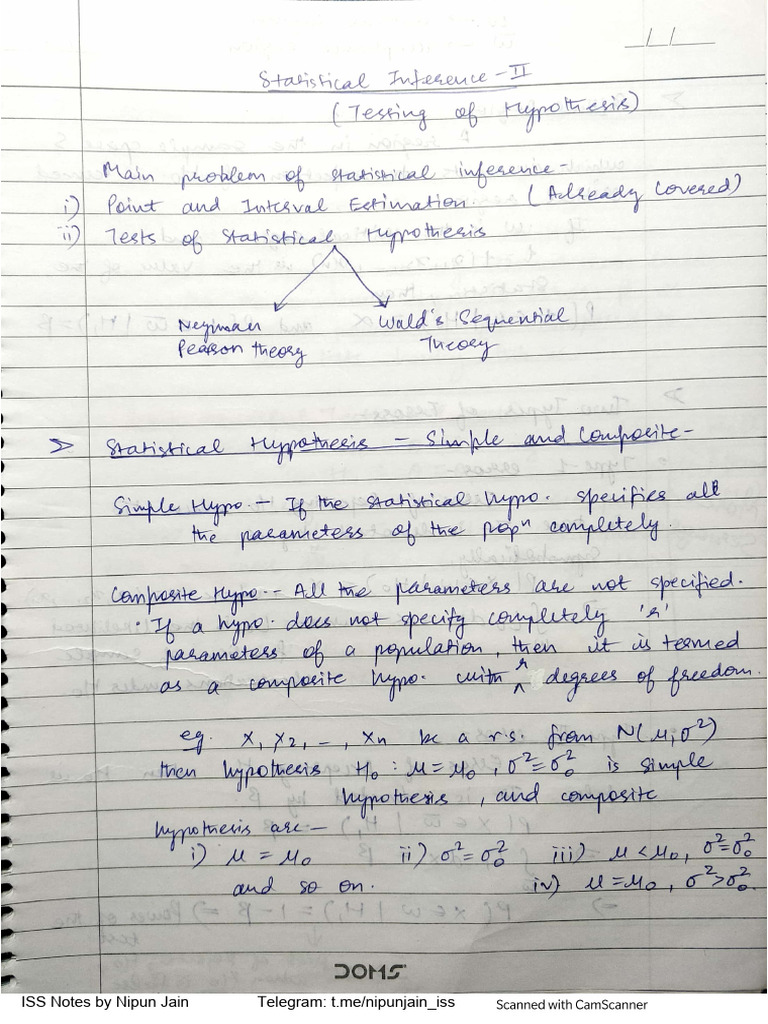 __/__/____
Statistical Inference - II
(Testing of Hypothesis)
Main problem of statistical inference -
i) Point and Interval Estimation (Already Covered)
ii) Tests of Statistical Hypothesis
Neyman Pearson theory
Wald's Sequential Theory
> Statistical Hypothesis - Simple and Composite -
Simple Hypo. - If the statistical hypo. specifies all
the parameters of the popⁿ completely.
Composite Hypo. - All the parameters are not specified.
• If a hypo. does not specify completely 'r'
parameters of a population, then it is termed
as a composite hypo. with r degrees of freedom.
eg. x₁ x₂, -, xn be a r.s. from N(μ, σ²)
then hypothesis H₀ : μ = μ₀, σ² = σ₀² is simple
hypothesis, and composite
hypothesis are -
i) μ = μ₀ ii) σ² = σ₀² iii) μ < μ₀, σ² = σ₀²
and so on. iv) μ = μ₀, σ² > σ₀².
DOMS
ISS Notes by Nipun Jain Telegram: t.me/nipunjain_iss Scanned with CamScanner